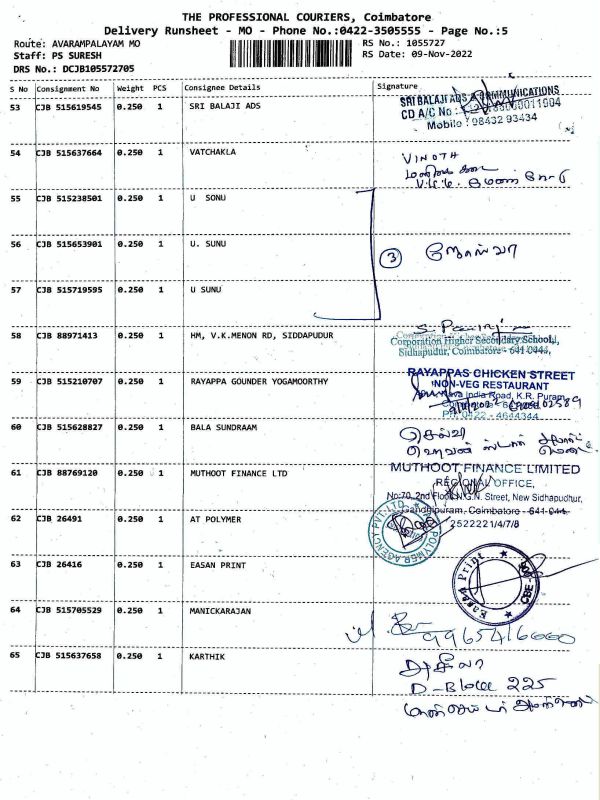 THE PROFESSIONAL COURIERS, Coimbatore
Delivery Runsheet - MO - Phone No.:0422-3505555 - Page No.:5
Route: AVARAMPALAYAM MO
RS No.: 1055727
Staff: PS SURESH
RS Date: 09-Nov-2022
DRS No.: DCJB105572705
S No Consignment No Weight PCS Consignee Details Signature
53 CJB 515619545 0.250 1 SRI BALAJI ADS
SRI BALAJI ADS & COMMUNICATIONS
CD A/C No :
Mobile : 98432 93434
54 CJB 515637664 0.250 1 VATCHAKLA VINOTH
55 CJB 515238501 0.250 1 U SONU
56 CJB 515653901 0.250 1 U. SUNU 3
57 CJB 515719595 0.250 1 U SUNU
58 CJB 88971413 0.250 1 HM, V.K.MENON RD, SIDDAPUDUR
Corporation Higher Secondary School,
Sidhapudur, Coimbatore - 641 044,
59 CJB 515210707 0.250 1 RAYAPPA GOUNDER YOGAMOORTHY
RAYAPPAS CHICKEN STREET
NON-VEG RESTAURANT
India Road, K.R. Puram,
PH: 0422 - 4644344
60 CJB 515628827 0.250 1 BALA SUNDRAAM செல்வி
61 CJB 88769120 0.250 1 MUTHOOT FINANCE LTD
MUTHOOT FINANCE LIMITED
REGIONAL OFFICE,
No:70, 2nd Floor, N.G.N. Street, New Sidhapudhur,
Gandhipuram, Coimbatore - 641 044.
2522221/4/7/8
62 CJB 26491 0.250 1 AT POLYMER
POLYMER AGENCY PVT. LTD.
63 CJB 26416 0.250 1 EASAN PRINT
Print CBE
64 CJB 515705529 0.250 1 MANICKARAJAN
9965416660
65 CJB 515637658 0.250 1 KARTHIK
D-Block 225